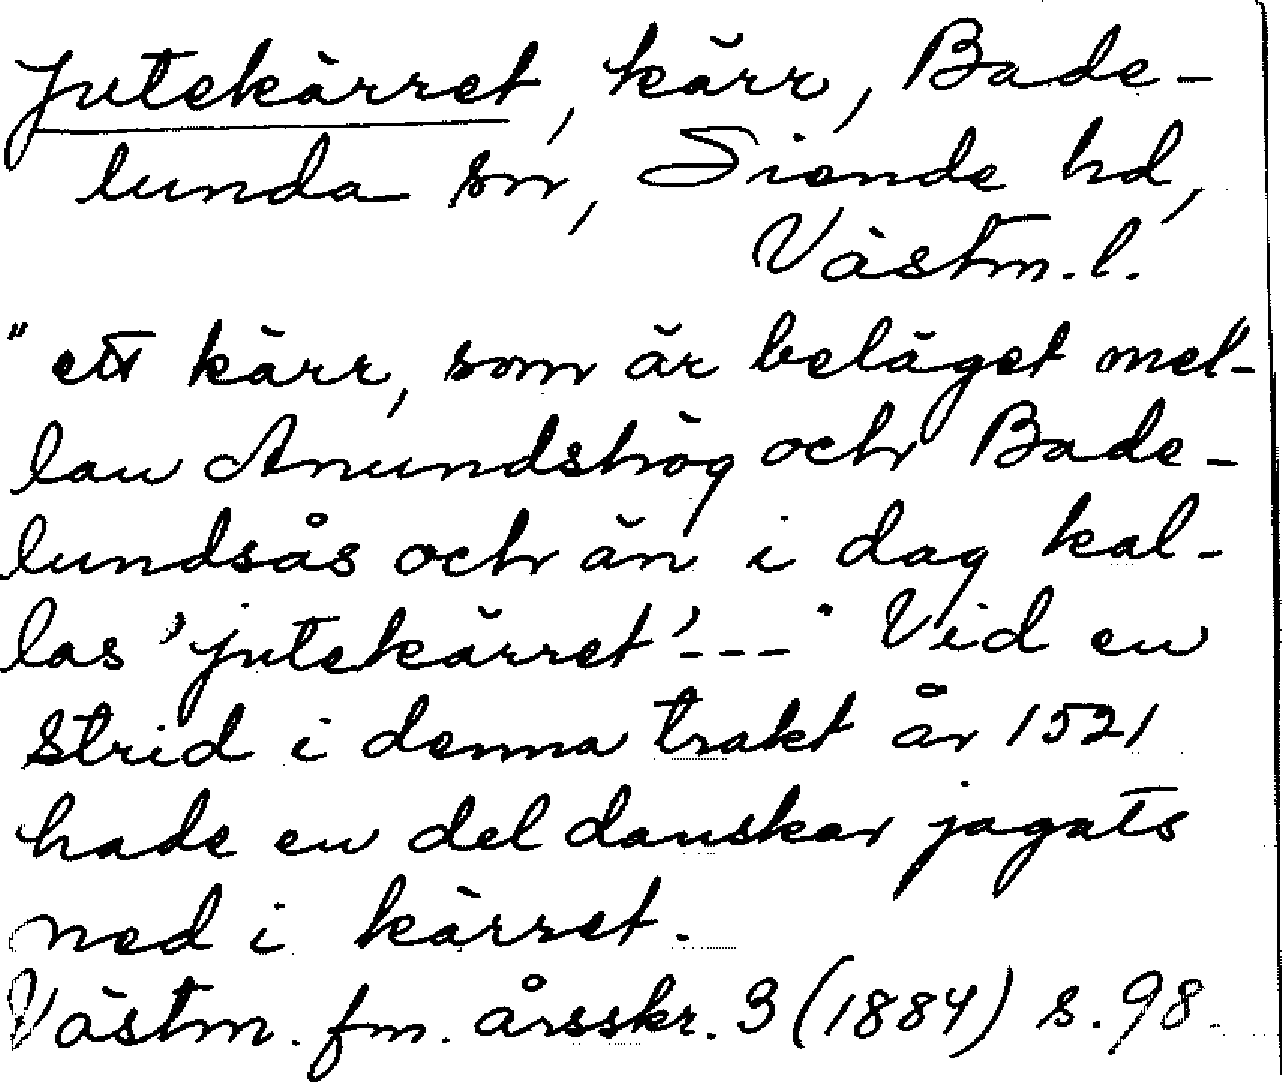 Jutekärret, kärr, Bade-
lunda sn, Siende hd,
Västm. l.
"ett kärr, som är beläget mel-
lan Anundshög och Bade-
lundsås och än i dag kal-
las 'jutekärret'---" Vid en
strid i denna trakt år 1521
hade en del danskar jagats
ned i kärret.
Västm. fm. årsskr. 3 (1884) s. 98.